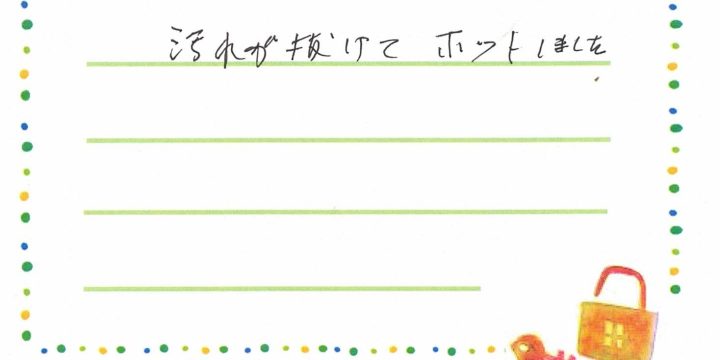 汚れが抜けて ホットしました